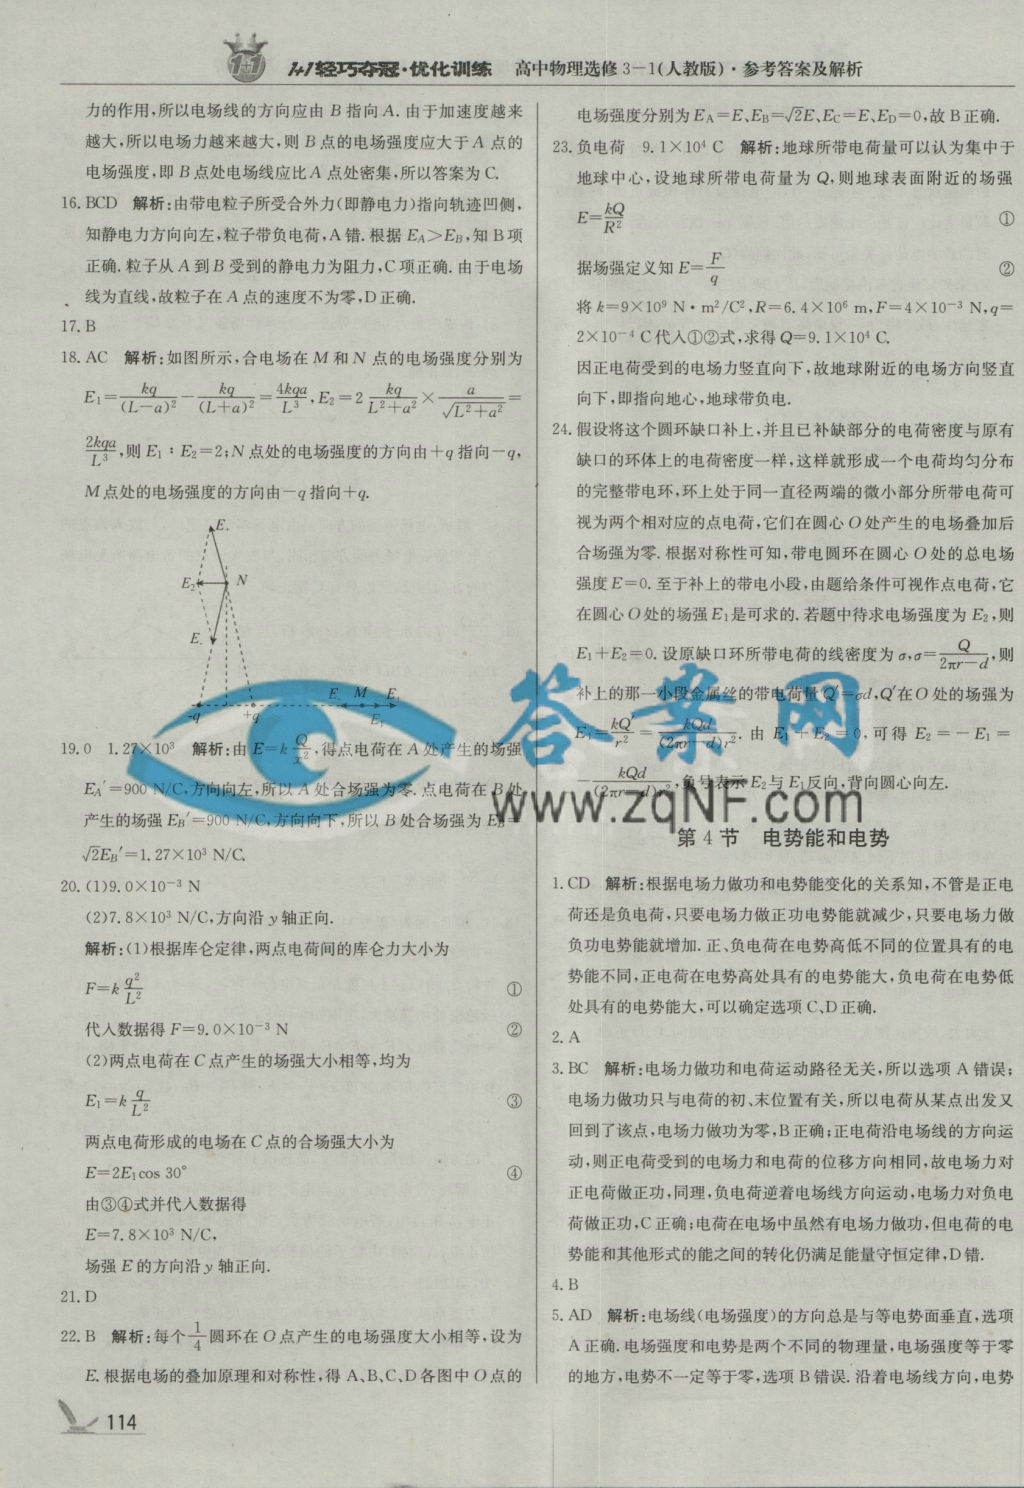 1+1轻巧夺冠·优化训练 高中物理选修3-1(人教版)·参考答案及解析
力的作用,所以电场线的方向应由B指向A.由于加速度越来
越大,所以电场力越来越大,则B点的电场强度应大于A点的
电场强度,即B点处电场线应比A点处密集,所以答案为C.
16. BCD 解析:由带电粒子所受合外力(即静电力)指向轨迹凹侧,
知静电力方向向左,粒子带负电荷,A错.根据E_A>E_B,知B项
正确.粒子从A到B受到的静电力为阻力,C项正确.由于电场
线为直线,故粒子在A点的速度不为零,D正确.
17. B
18. AC 解析:如图所示,合电场在M和N点的电场强度分别为
E₁=kq/(L-a)²-kq/(L+a)²=4kqa/L³,E₂=2 kq/(L²+a²)×a/√(L²+a²)=
2kqa/L³,则E₁∶E₂=2;N点处的电场强度的方向由+q指向-q,
M点处的电场强度的方向由-q指向+q.
E₊
E₂ N
E₋
E M E
-q +q E₁
19. 0 1.27×10³ 解析:由E=k Q/x²,得点电荷在A处产生的场强
E_A′=900 N/C,方向向左,所以A处合场强为零.点电荷在B处
产生的场强E_B′=900 N/C,方向向下,所以B处合场强为E_B=
√2E_B′=1.27×10³ N/C.
20. (1)9.0×10⁻³ N
(2)7.8×10³ N/C,方向沿y轴正向.
解析:(1)根据库仑定律,两点电荷间的库仑力大小为
F=k q²/L² ①
代入数据得F=9.0×10⁻³ N ②
(2)两点电荷在C点产生的场强大小相等,均为
E₁=k q/L² ③
两点电荷形成的电场在C点的合场强大小为
E=2E₁cos 30° ④
由③④式并代入数据得
E=7.8×10³ N/C,
场强E的方向沿y轴正向.
21. D
22. B 解析:每个1/4圆环在O点产生的电场强度大小相等,设为
E.根据电场的叠加原理和对称性,得A、B、C、D各图中O点的
114
电场强度分别为E_A=E、E_B=√2E、E_C=E、E_D=0,故B正确.
23. 负电荷 9.1×10⁴ C 解析:地球所带电荷量可以认为集中于
地球中心,设地球所带电荷量为Q,则地球表面附近的场强
E=kQ/R² ①
据场强定义知E=F/q ②
将k=9×10⁹ N·m²/C²,R=6.4×10⁶ m,F=4×10⁻³ N,q=
2×10⁻⁴ C代入①②式,求得Q=9.1×10⁴ C.
因正电荷受到的电场力竖直向下,故地球附近的电场方向竖直
向下,即指向地心,地球带负电.
24. 假设将这个圆环缺口补上,并且已补缺部分的电荷密度与原有
缺口的环体上的电荷密度一样,这样就形成一个电荷均匀分布
的完整带电环,环上处于同一直径两端的微小部分所带电荷可
视为两个相对应的点电荷,它们在圆心O处产生的电场叠加后
合场强为零.根据对称性可知,带电圆环在圆心O处的总电场
强度E=0.至于补上的带电小段,由题给条件可视作点电荷,它
在圆心O处的场强E₁是可求的.若题中待求电场强度为E₂,则
E₁+E₂=0.设原缺口环所带电荷的线密度为σ,σ=Q/(2πr-d),则
补上的那一小段金属丝的带电荷量Q′=σd,Q′在O处的场强为
E₁=kQ′/r²=kQd/(2πr-d)r².由E₁+E₂=0,可得E₂=-E₁=
-kQd/(2πr-d)r²,负号表示E₂与E₁反向,背向圆心向左.
第4节 电势能和电势
1. CD 解析:根据电场力做功和电势能变化的关系知,不管是正电
荷还是负电荷,只要电场力做正功电势能就减少,只要电场力做
负功电势能就增加.正、负电荷在电势高低不同的位置具有的电
势能不同,正电荷在电势高处具有的电势能大,负电荷在电势低
处具有的电势能大,可以确定选项C、D正确.
2. A
3. BC 解析:电场力做功和电荷运动路径无关,所以选项A错误;
电场力做功只与电荷的初、末位置有关,所以电荷从某点出发又
回到了该点,电场力做功为零,B正确;正电荷沿电场线的方向运
动,则正电荷受到的电场力和电荷的位移方向相同,故电场力对
正电荷做正功,同理,负电荷逆着电场线方向运动,电场力对负电
荷做正功,C正确;电荷在电场中虽然有电场力做功,但电荷的电
势能和其他形式的能之间的转化仍满足能量守恒定律,D错.
4. B
5. AD 解析:电场线(电场强度)的方向总是与等电势面垂直,选项
A正确.电场强度和电势是两个不同的物理量,电场强度等于零
的地方,电势不一定等于零,选项B错误.沿着电场线方向,电势
答案网
www.zqNF.com